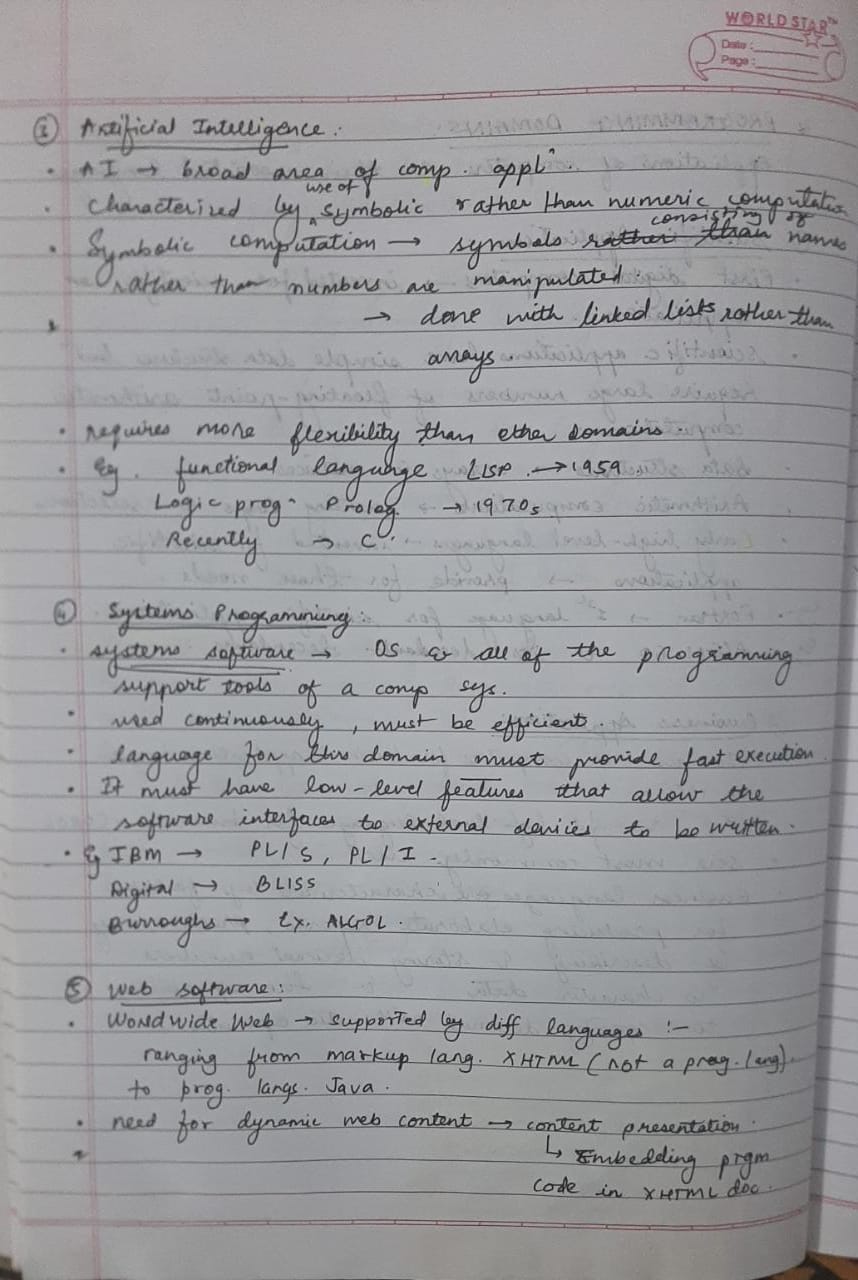 WORLD STAR™
Date:
Page:
③ Artificial Intelligence:
• AI → broad area of comp. applⁿ
• Characterized by use of symbolic rather than numeric computation
• Symbolic computation → symbols rather than consisting of names
rather than numbers are manipulated.
→ done with linked lists rather than
arrays.
• requires more flexibility than other domains.
• Eg. functional language LISP → 1959
Logic prog. Prolog → 1970s
Recently → C
④ Systems Programming:
• systems software → OS & all of the programming
support tools of a comp sys.
• used continuously, must be efficient.
• language for this domain must provide fast execution
• It must have low-level features that allow the
software interfaces to external devices to be written.
• Eg IBM → PL/S, PL/I.
Digital → BLISS
Burroughs → Ex. ALGOL.
⑤ Web software:
• Worldwide Web → supported by diff languages :-
ranging from markup lang. XHTML (not a prog. lang).
to prog. langs. Java.
• need for dynamic web content → content presentation.
↳ Embedding prgm
code in XHTML doc.